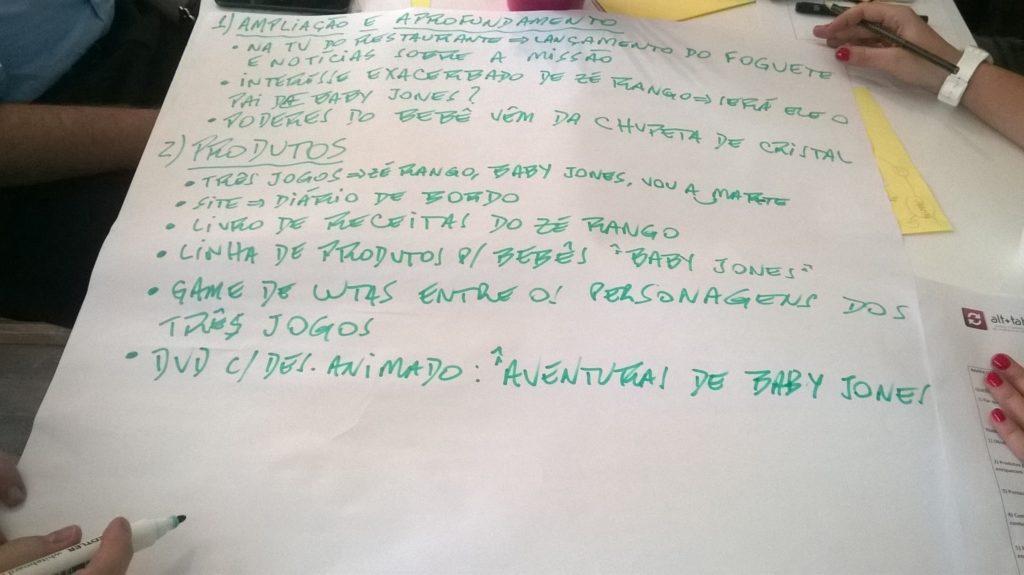 1) AMPLIAÇÃO E APROFUNDAMENTO
• NA TV DO RESTAURANTE ⇒ LANÇAMENTO DO FOGUETE
E NOTÍCIAS SOBRE A MISSÃO
• INTERESSE EXACERBADO DE ZÉ RANGO ⇒ SERÁ ELE O
PAI DE BABY JONES?
• PODERES DO BEBÊ VÊM DA CHUPETA DE CRISTAL
2) PRODUTOS
• TRÊS JOGOS ⇒ ZÉ RANGO, BABY JONES, VOU A MARTE
• SITE ⇒ DIÁRIO DE BORDO
• LIVRO DE RECEITAS DO ZÉ RANGO
• LINHA DE PRODUTOS P/ BEBÊS "BABY JONES"
• GAME DE LUTAS ENTRE OS PERSONAGENS DOS
TRÊS JOGOS
• DVD C/ DES. ANIMADO: "AVENTURAS DE BABY JONES
alt+tab